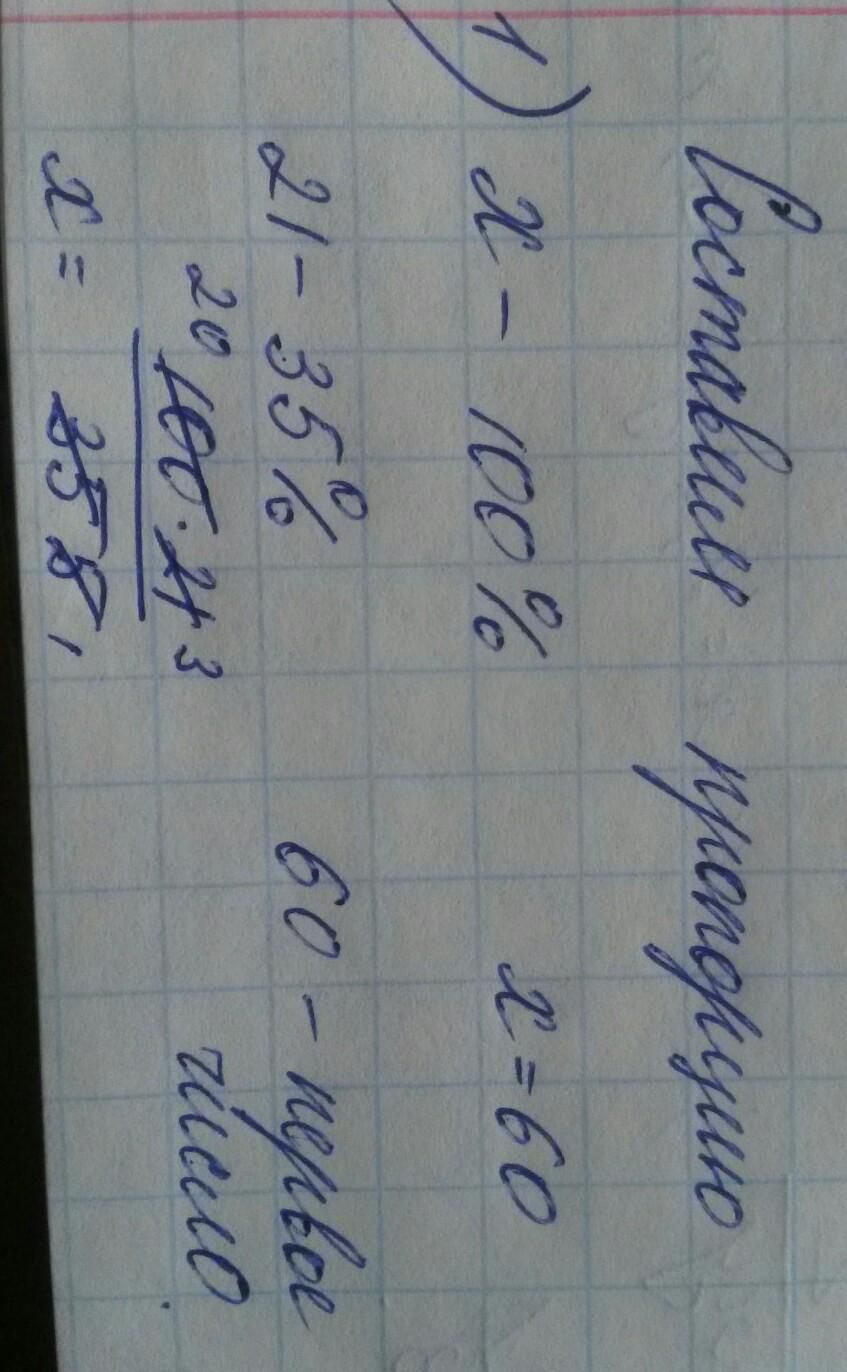 Составим пропорцию
1) х - 100% х = 60
21 - 35% 60 - первое
число
20 100 · 21 3
х = 35 5,